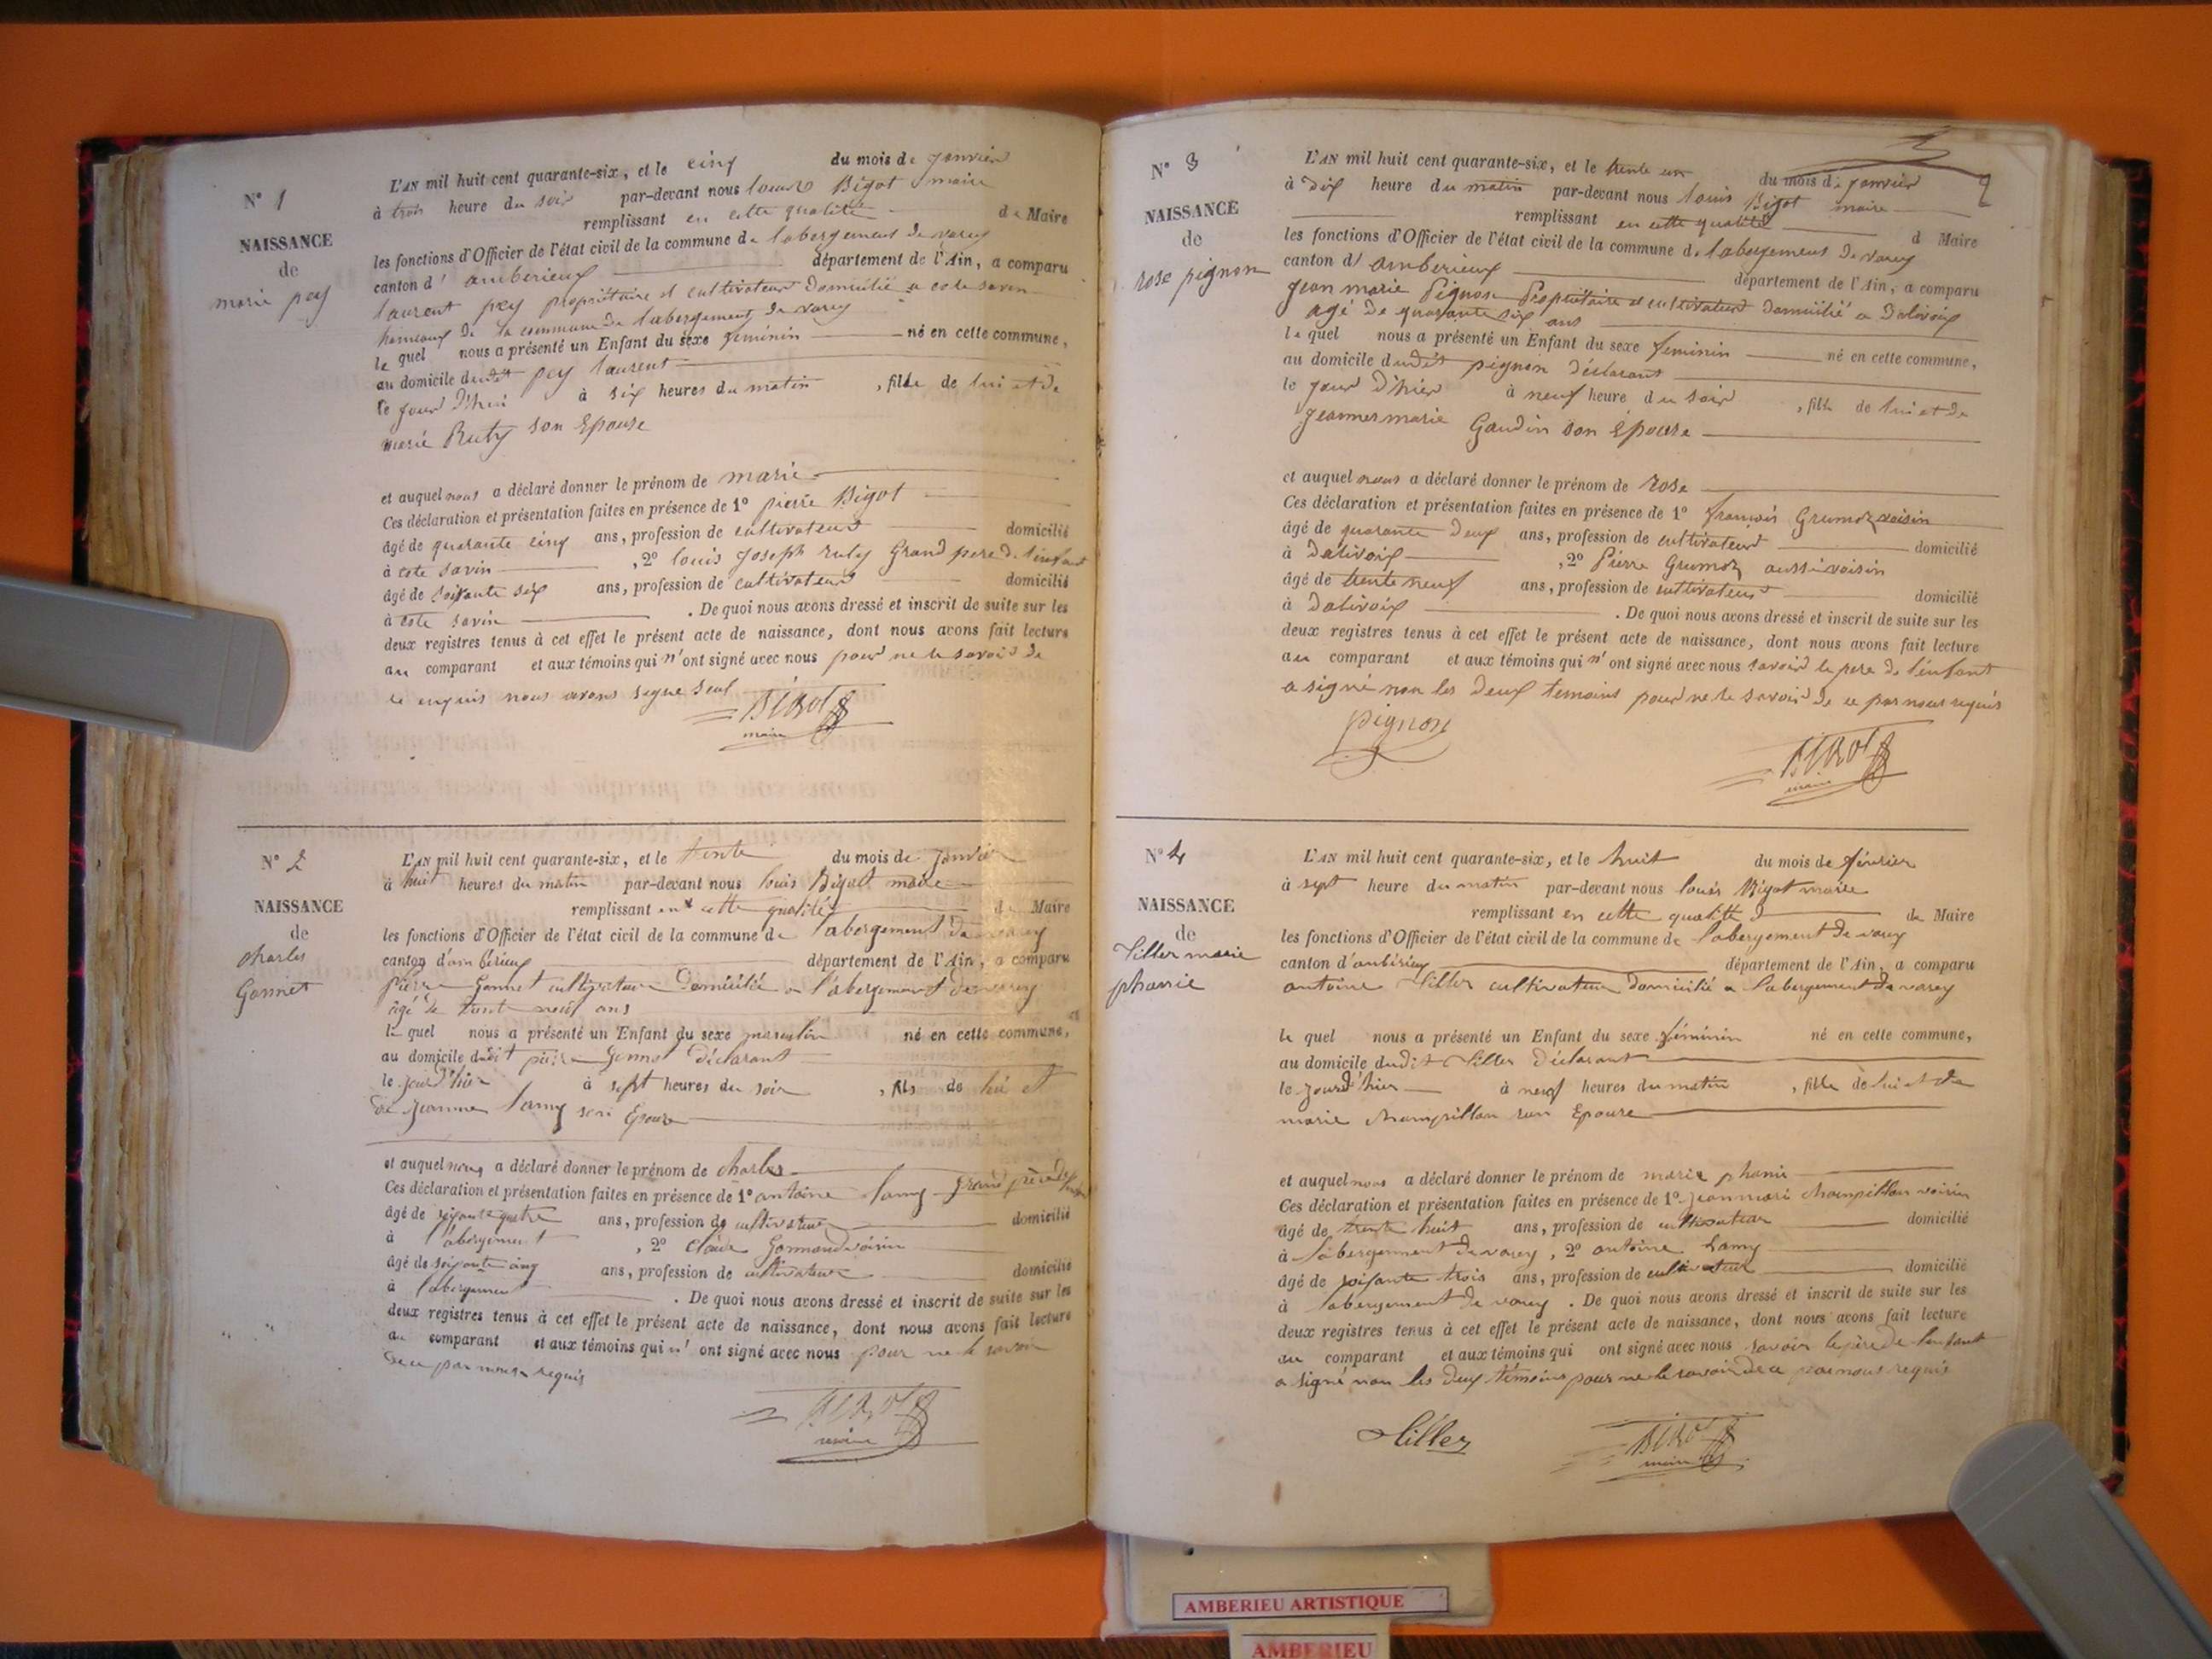 N° 1
NAISSANCE
de
marie pey
L'AN mil huit cent quarante-six, et le cinq du mois de janvier
à trois heure du soir par-devant nous louis Bigot maire
remplissant en cette qualité de Maire
les fonctions d'Officier de l'état civil de la commune de labergement de varey
canton d' amberieux département de l'Ain, a comparu
laurent pey propriétaire et cultivateur domicilié a cote savin
hameaux de la commune de labergement de varey
le quel nous a présenté un Enfant du sexe féminin né en cette commune,
au domicile dudit pey laurent
le jour d'hui à six heures du matin, fille de lui et de
marie Ruty son Epouse
et auquel nous a déclaré donner le prénom de marie
Ces déclaration et présentation faites en présence de 1° pierre Bigot
âgé de quarante cinq ans, profession de cultivateur domicilié
à cote savin, 2° louis joseph ruty Grand pere de l'enfant
âgé de soixante six ans, profession de cultivateur domicilié
à cote savin. De quoi nous avons dressé et inscrit de suite sur les
deux registres tenus à cet effet le présent acte de naissance, dont nous avons fait lecture
au comparant et aux témoins qui n'ont signé avec nous pour ne le savoir de
ce enquis nous avons signé seul
BIGOT
maire
N° 2
NAISSANCE
de
charles
Gonnet
L'AN mil huit cent quarante-six, et le trente du mois de janvier
à huit heures du matin par-devant nous louis Bigot maire
remplissant en cette qualité de Maire
les fonctions d'Officier de l'état civil de la commune de labergement de varey
canton d'amberieux département de l'Ain, a comparu
pierre Gonnet cultivateur domicilié a l'abergement de varey
âgé de trente neuf ans
le quel nous a présenté un Enfant du sexe masculin né en cette commune,
au domicile dudit pierre Gonnet déclarant
le jour d'hier à sept heures du soir, fils de lui et
de jeanne lamy son Epouse
et auquel nous a déclaré donner le prénom de charles
Ces déclaration et présentation faites en présence de 1° antoine lamy grand père de
âgé de soixante quatre ans, profession de cultivateur domicilié
à l'abergement, 2° claude Gormand voisin
âgé de soixante cinq ans, profession de cultivateur domicilié
à l'abergement. De quoi nous avons dressé et inscrit de suite sur les
deux registres tenus à cet effet le présent acte de naissance, dont nous avons fait lecture
au comparant et aux témoins qui n' ont signé avec nous pour ne le savoir
de ce par nous requis
BIGOT
maire
N° 3
NAISSANCE
de
rose pignon
L'AN mil huit cent quarante-six, et le trente un du mois de janvier
à dix heure du matin par-devant nous louis Bigot maire
remplissant en cette qualité d Maire
les fonctions d'Officier de l'état civil de la commune de labergement de varey
canton d' amberieux département de l'Ain, a comparu
jean marie Pignon Propriétaire et cultivateur domicilié a dalivoix
agé de quarante six ans
le quel nous a présenté un Enfant du sexe feminin né en cette commune,
au domicile dudit pignon déclarant
le jour d'hier à neuf heure du soir, fille de lui et de
jeanne marie Gaudin son Epouse
et auquel nous a déclaré donner le prénom de rose
Ces déclaration et présentation faites en présence de 1° francois Grumod voisin
âgé de quarante deux ans, profession de cultivateur domicilié
à dalivoix, 2° Pierre Grumod aussi voisin
âgé de trente neuf ans, profession de cultivateur domicilié
à dalivoix. De quoi nous avons dressé et inscrit de suite sur les
deux registres tenus à cet effet le présent acte de naissance, dont nous avons fait lecture
au comparant et aux témoins qui n' ont signé avec nous savoir le pere de l'enfant
a signé non les deux temoins pour ne le savoir de ce par nous requis
pignon
BIGOT
maire
N° 4
NAISSANCE
de
Tiller marie
phanie
L'AN mil huit cent quarante-six, et le huit du mois de février
à sept heure du matin par-devant nous louis Bigot maire
remplissant en cette qualité de Maire
les fonctions d'Officier de l'état civil de la commune de labergement de varey
canton d'anbérieux département de l'Ain, a comparu
antoine Tiller cultivateur domicilié a labergement de varey
le quel nous a présenté un Enfant du sexe féminin né en cette commune,
au domicile dudit Tiller déclarant
le jour d'hier à neuf heures du matin, fille de lui et de
marie champillon son Epouse
et auquel nous a déclaré donner le prénom de marie phanie
Ces déclaration et présentation faites en présence de 1° jean marie champillon voisin
âgé de trente huit ans, profession de cultivateur domicilié
à labergement de varey, 2° antoine Lamy
âgé de soixante trois ans, profession de cultivateur domicilié
à labergement de varey. De quoi nous avons dressé et inscrit de suite sur les
deux registres tenus à cet effet le présent acte de naissance, dont nous avons fait lecture
au comparant et aux témoins qui ont signé avec nous savoir le père de lenfant
a signé non les deux témoins pour ne le savoir de ce par nous requis
Tiller
BIGOT
maire
AMBERIEU ARTISTIQUE
AMBERIEU